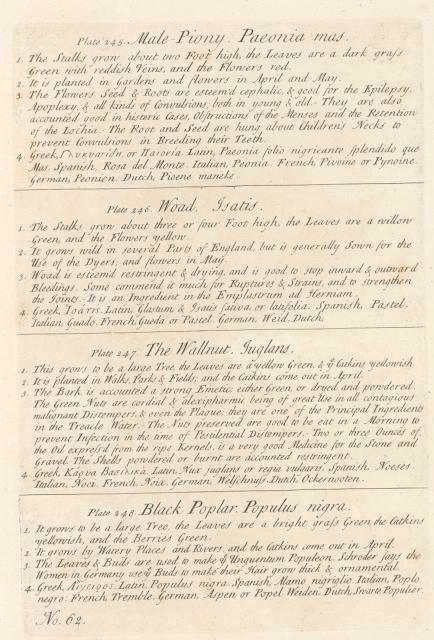 Plate 245. Male Piony. Paeonia mas.
1. The Stalks grow about two Foot high, the Leaves are a dark grass
Green with reddish Veins, and the Flowers red.
2. It is planted in Gardens and flowers in April and May.
3. The Flowers Seed & Roots are esteem'd cephalic, & good for the Epilepsy,
Apoplexy, & all kinds of Convulsions, both in young & old. They are also
accounted good in histeric Cases, Obstructions of the Menses and the Retention
of the Lochia. The Root and Seed are hung about Children's Necks to
prevent Convulsions in Breeding their Teeth.
4. Greek, or Latin, Paeonia folio nigricante splendido que
Mas. Spanish, Rosa del Monte. Italian, Peonia. French, Pivoine or Pynoine.
German, Peonien. Dutch, Pioene maneke.
Plate 246. Woad. Isatis.
1. The Stalks grow about three or four Foot high, the Leaves are a willow
Green, and the Flowers yellow.
2. It grows wild in several Parts of England, but is generally Sown for the
Use of the Dyers; and flowers in May.
3. Woad is esteemd restringent & drying, and is good to stop inward & outward
Bleedings. Some commend it much for Ruptures & Strains, and to strengthen
the Joints. It is an Ingredient in the Emplastrum ad Herniam.
4. Greek, Latin, Glastum & Isatis sativa, or latifolia. Spanish, Pastel.
Italian, Guado. French, Gueda or Pastel. German, Weid. Dutch
Plate 247. The Wallnut. Juglans.
1. This grows to be a large Tree, the Leaves are a yellow Green & yͤ Catkins yellowish
2. It is planted in Walks, Parks & Fields; and the Catkins come out in April.
3. The Bark is accounted a strong Emetic either Green or dryed and powdered.
The Green Nuts are cordial & alexipharmic being of great Use in all contagious
malignant Distempers, & even the Plague; they are one of the Principal Ingredients
in the Treacle Water. The Nuts preserved are good to be eat in a Morning to
prevent Infection in the time of Pestilential Distempers. Two or three Ounces of
the Oil express'd from the ripe Kernels, is a very good Medicine for the Stone and
Gravel. The Shells powdered or burnt are accounted restringent.
4. Greek, Latin, Nux juglans or regia vulgaris. Spanish, Noeses.
Italian, Noci. French, Noix. German, Welschnuss. Dutch, Ockernooten.
Plate 248. Black Poplar. Populus nigra.
1. It grows to be a large Tree, the Leaves are a bright grass Green, the Catkins
yellowish, and the Berries Green.
2. It grows by Watery Places and Rivers, and the Catkins come out in April.
3. The Leaves & Buds are used to make yͤ Unguentum Populeon. Schroder says the
Women in Germany use yͤ Buds to make their Hair grow thick & ornamental.
4. Greek, Latin, Populus nigra. Spanish, Alamo nigriglio. Italian, Poplo
negro. French, Tremble. German, Aspen or Popel Weiden. Dutch, Swarte Populier.
No. 62.